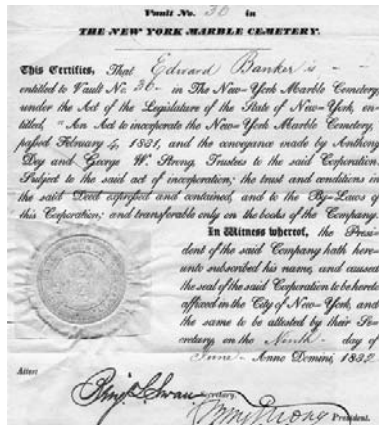 Vault No. 30 in
THE NEW YORK MARBLE CEMETERY.
This Certifies, That Edward Banker is
entitled to Vault No. 30 in The New-York Marble Cemetery,
under the Act of the Legislature of the State of New-York, en-
titled, "An Act to incorporate the New-York Marble Cemetery,
passed February 4, 1831, and the conveyance made by Anthony
Dey and George W. Strong, Trustees to the said Corporation.
Subject to the said act of incorporation; the trust and conditions in
the said Deed expressed and contained, and to the By-Laws of
this Corporation; and transferable only on the books of the Company.
In Witness whereof, the Presi-
dent of the said Company hath here-
unto subscribed his name, and caused
the seal of the said Corporation to be hereto
affixed in the City of New-York, and
the same to be attested by their Se-
cretary, on the Ninth day of
June Anno Domini, 1832
Attest
Benj. L. Swan Secretary.
Strong President.